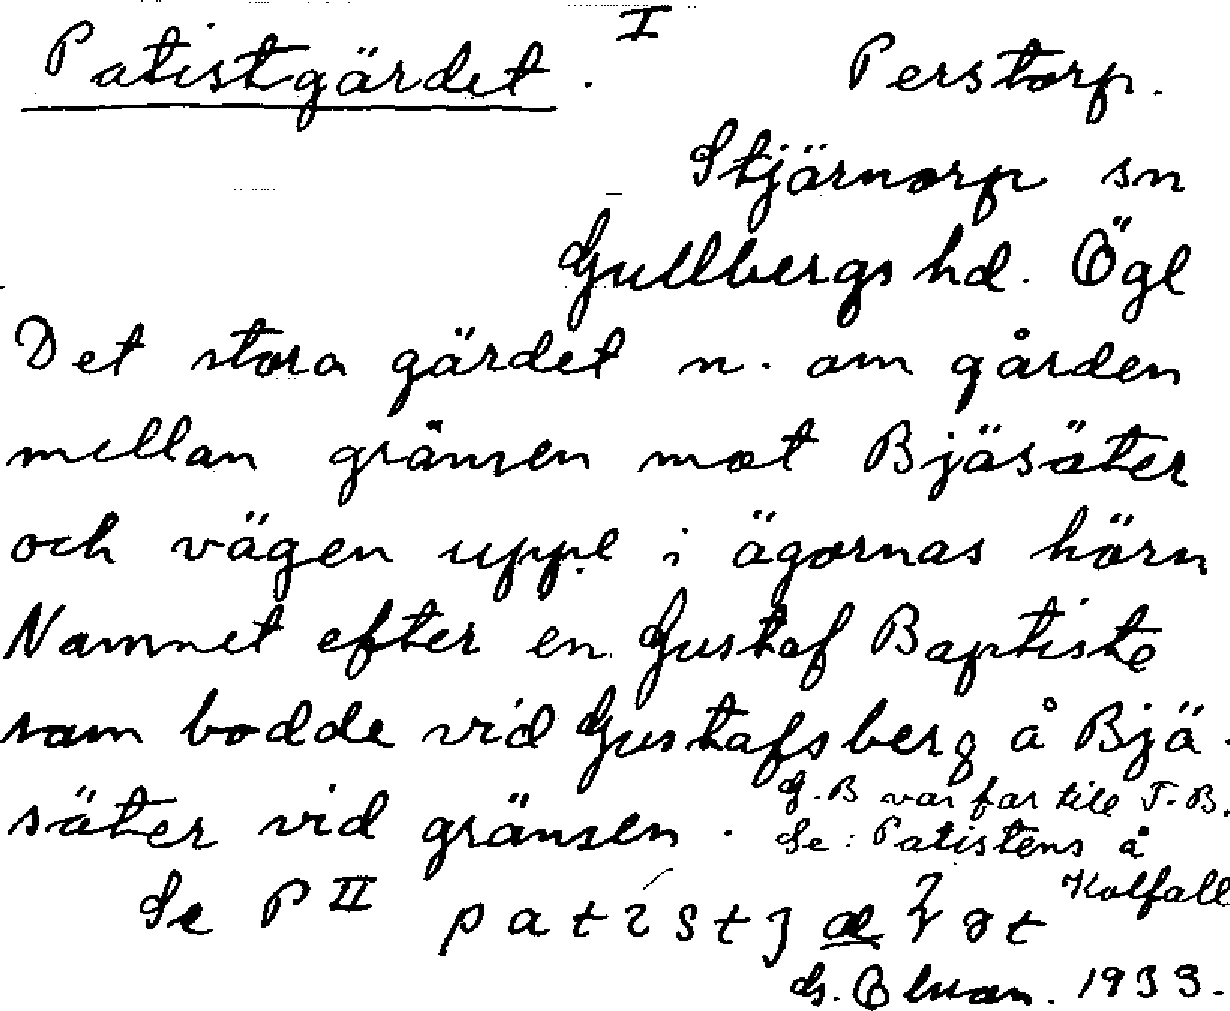 Patistgärdet. I Perstorp.
Stjärnorp sn
Gullbergs hd. Ögl
Det stora gärdet n. om gården
mellan gränsen mot Bjäsäter
och vägen uppe i ägornas hörn
Namnet efter en Gustaf Baptiste
som bodde vid Gustafsberg å Bjä-
säter vid gränsen.
G. B var far till J. B.
Se: Patistens å
Kolfall
Se P II
1933.